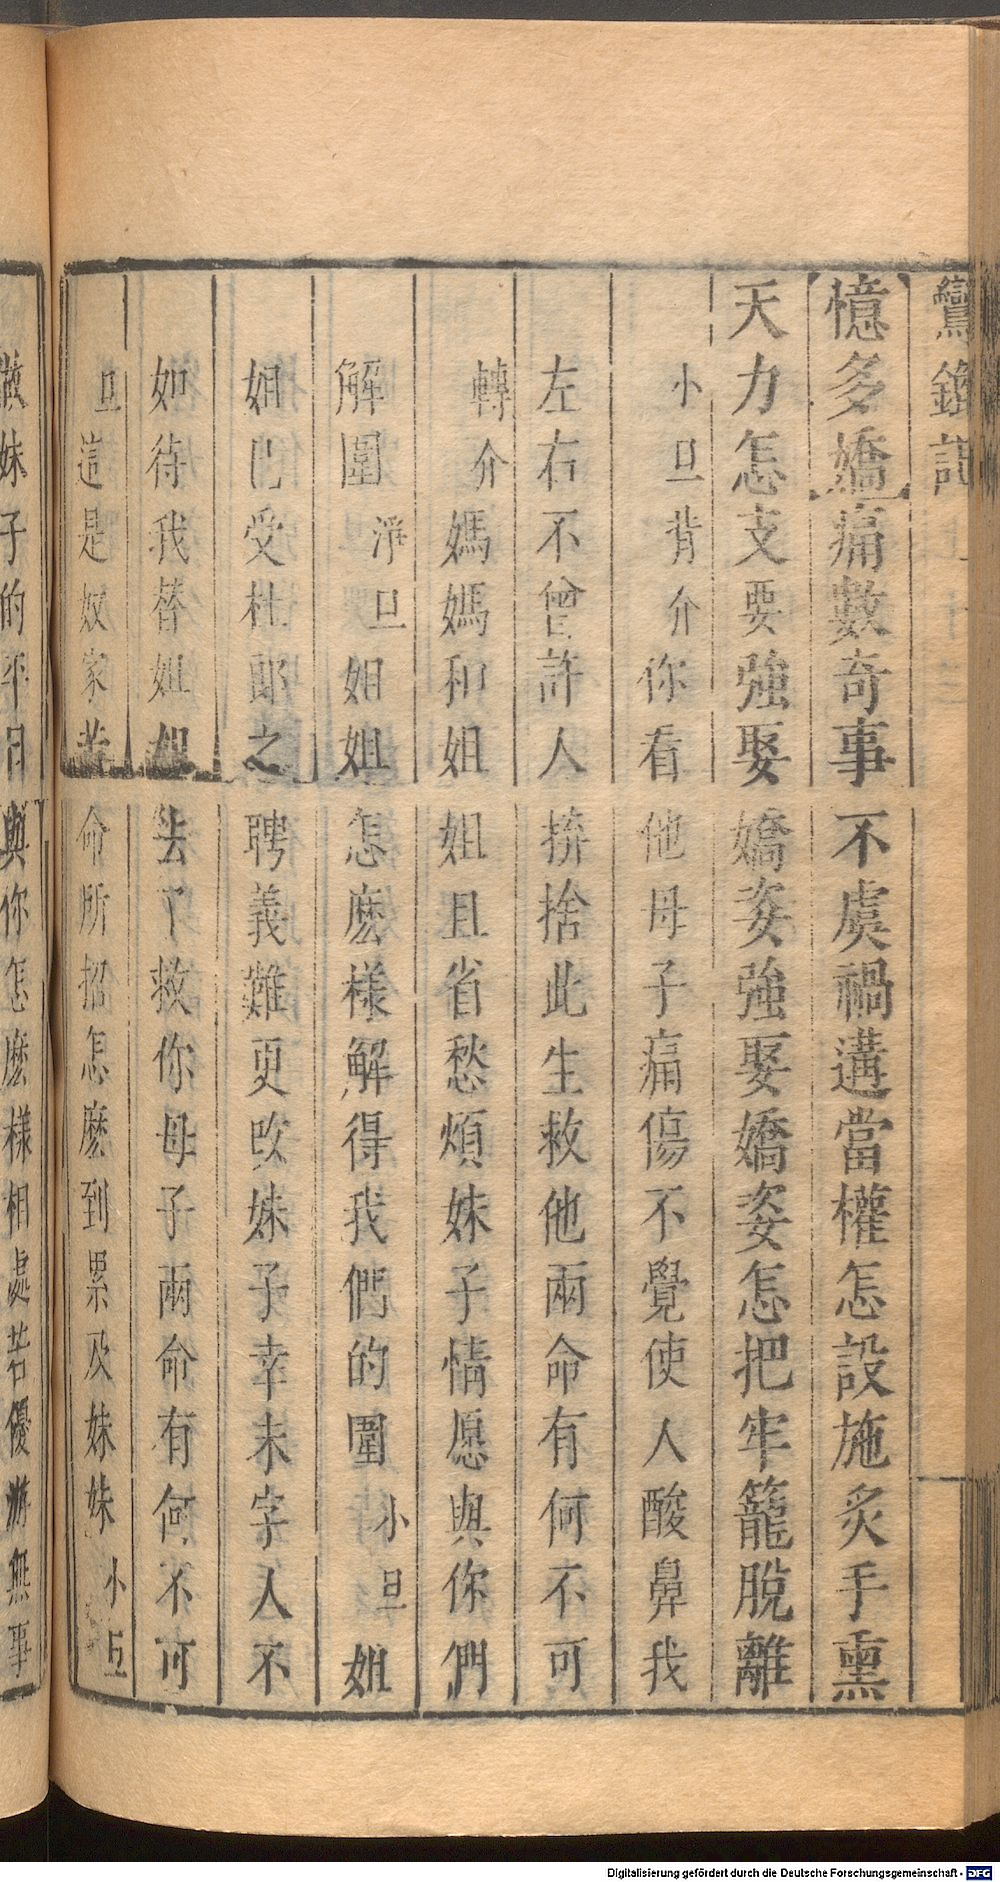 鸞鎞記
憶多嬌痛數奇事不虞禍遘當權怎設施炙手熏
天力怎支要強娶嬌姿強娶嬌姿怎把牢籠脫離
小旦背介你看他母子痛傷不覺使人酸鼻我
左右不曾許人捹捨此生救他兩命有何不可
轉介媽媽和姐姐且省愁煩妹子情愿與你們
解圍淨旦姐姐怎麽樣解得我們的圍小旦姐
姐已受杜郎之聘義難更改妹子幸未字人不
如待我替姐姐去了救你母子兩命有何不可
旦這是奴家苦命所招怎麽到累及妹妹小旦
做妹子的平日與你怎麽樣相處若優游無事
Digitalisierung gefördert durch die Deutsche Forschungsgemeinschaft - DFG